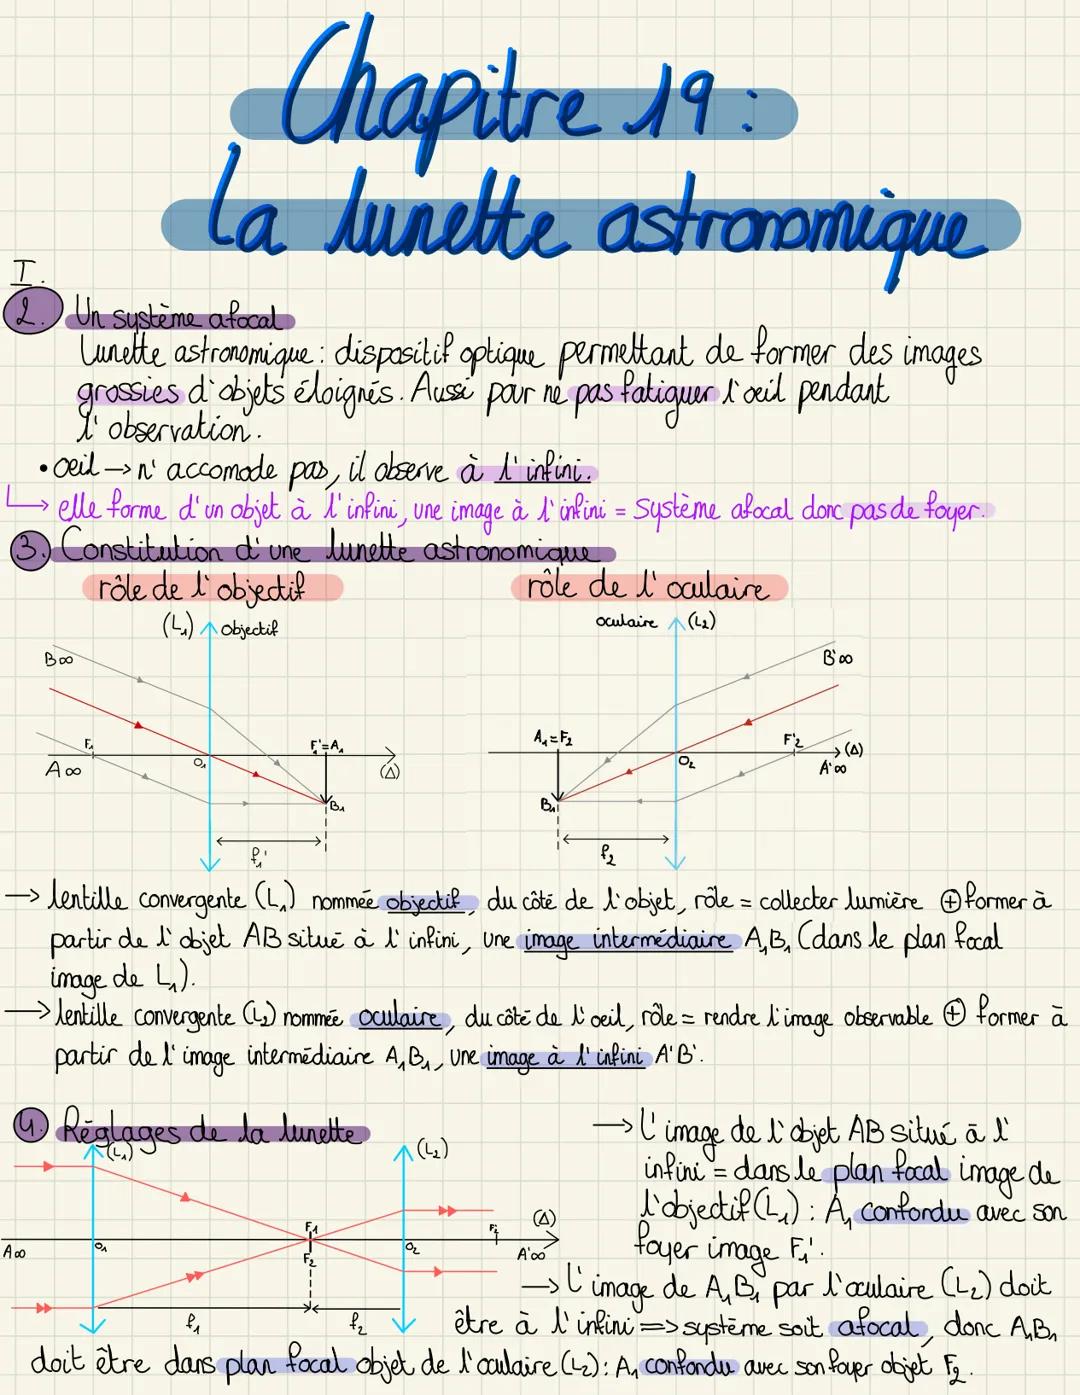 Chapitre 19 :
La lunette astronomique
I.
2. Un système afocal
Lunette astronomique : dispositif optique permettant de former des images
grossies d'objets éloignés. Aussi pour ne pas fatiguer l'oeil pendant
l'observation.
• oeil → n'accomode pas, il observe à l'infini.
↳ elle forme d'un objet à l'infini, une image à l'infini = Système afocal donc pas de foyer.
3. Constitution d'une lunette astronomique
rôle de l'objectif
rôle de l'oculaire
(L₁) objectif
oculaire (L₂)
B∞
B'∞
F₁
F₁'=A₁
A₁=F₂
F'₂
(Δ)
A∞
O₁
(Δ)
O₂
A'∞
B₁
B₁
f₁'
f₂
→ lentille convergente (L₁) nommée objectif, du côté de l'objet, rôle = collecter lumière ⊕ former à
partir de l'objet AB situé à l'infini, une image intermédiaire A₁B₁ (dans le plan focal
image de L₁).
→ lentille convergente (L₂) nommée oculaire, du côté de l'oeil, rôle = rendre l'image observable ⊕ former à
partir de l'image intermédiaire A₁B₁, une image à l'infini A'B'.
4. Réglages de la lunette
(L₁)
(L₂)
F₁
F₂
(Δ)
A∞
O₁
F₂
O₂
A'∞
f₁
f₂
→ L'image de l'objet AB situé à l'
infini = dans le plan focal image de
l'objectif (L₁) : A₁ confondu avec son
foyer image F₁'.
→ L'image de A₁B₁ par l'oculaire (L₂) doit
être à l'infini => système soit afocal, donc A₁B₁
doit être dans plan focal objet de l'oculaire (L₂) : A₁ confondu avec son foyer objet F₂.